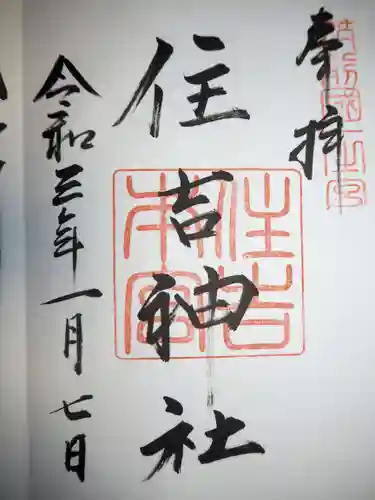 奉拝
住吉神社
令和三年一月七日
住吉
本宮